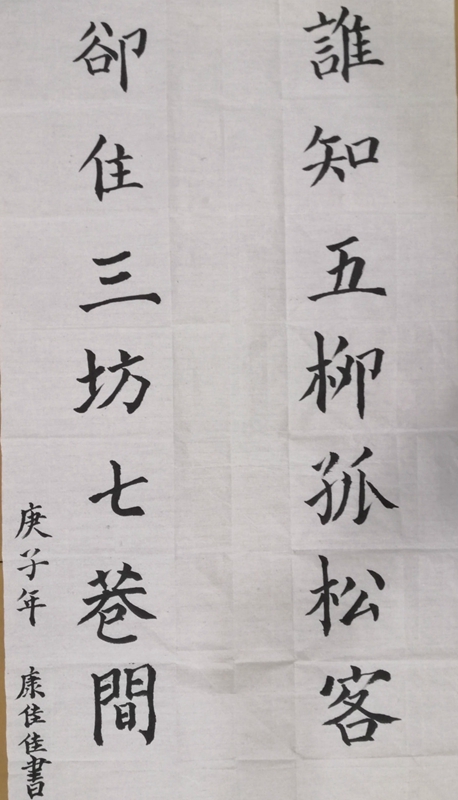 誰知五柳孤松客
卻住三坊七巷間
庚子年 康佳佳書